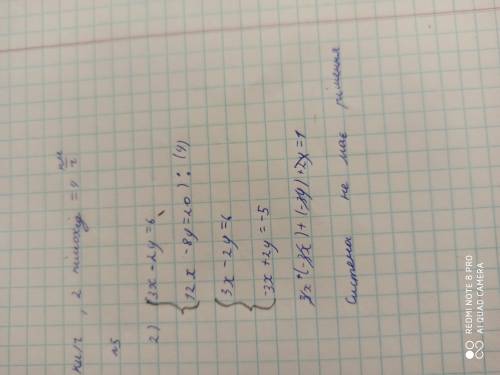 км/г, 2 пішохід = 4 км/г
№5
2) { 3x - 2y = 6
{ 12x - 8y = 20 ) : (4)
{ 3x - 2y = 6
{ -3x + 2y = -5
3x + (-3x) + (-2y) + 2y = 1
Система не має рішення
REDMI NOTE 8 PRO
AI QUAD CAMERA